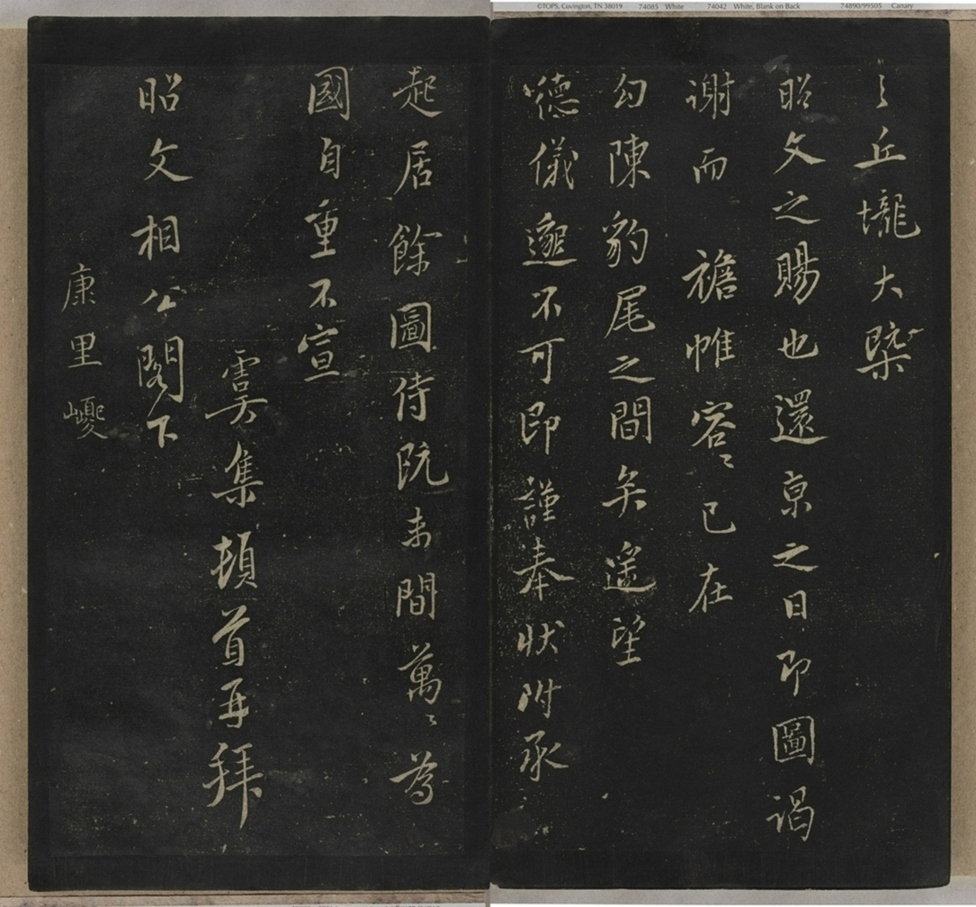 ©TOPS, Covington, TN 38019 74085 White 74042 White, Blank on Back 74890/99505 Canary
之丘壠大槩
昭文之賜也還京之日即圖謁
謝而 襜帷容〻已在
勾陳豹尾之間矣遥望
德儀邈不可即謹奉狀附承
起居餘圖侍阮未間萬〻為
國自重不宣
雲集頓首再拜
昭文相公閣下
康里巙